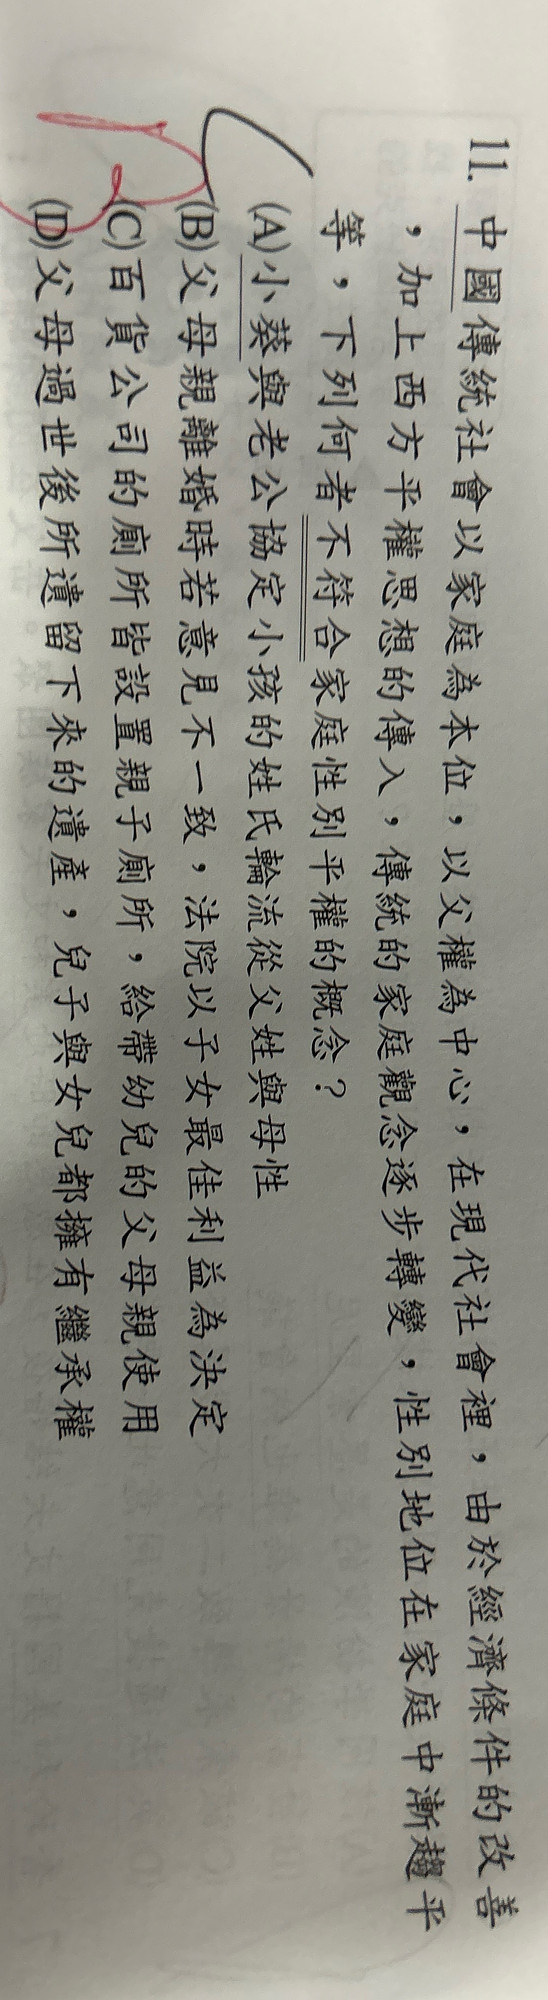 11. 中國傳統社會以家庭為本位，以父權為中心，在現代社會裡，由於經濟條件的改善
，加上西方平權思想的傳入，傳統的家庭觀念逐步轉變，性別地位在家庭中漸趨平
等，下列何者不符合家庭性別平權的概念？
(A)小葵與老公協定小孩的姓氏輪流從父姓與母性
(B)父母親離婚時若意見不一致，法院以子女最佳利益為決定
(C)百貨公司的廁所皆設置親子廁所，給帶幼兒的父母親使用
(D)父母過世後所遺留下來的遺產，兒子與女兒都擁有繼承權